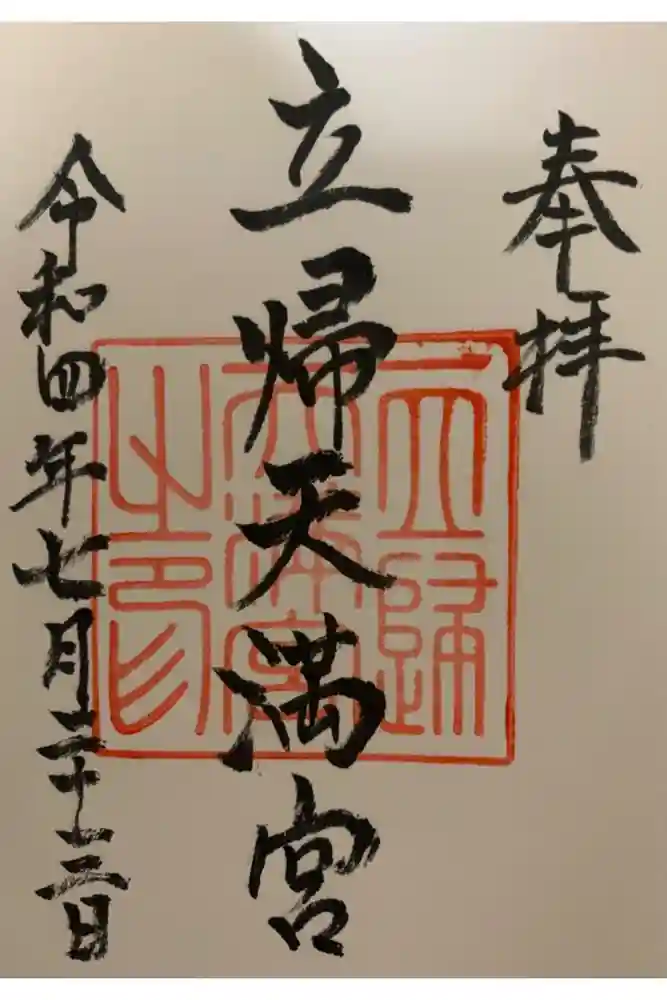 奉拝
立帰天満宮
令和四年七月二十三日
立歸
天満宮
之印